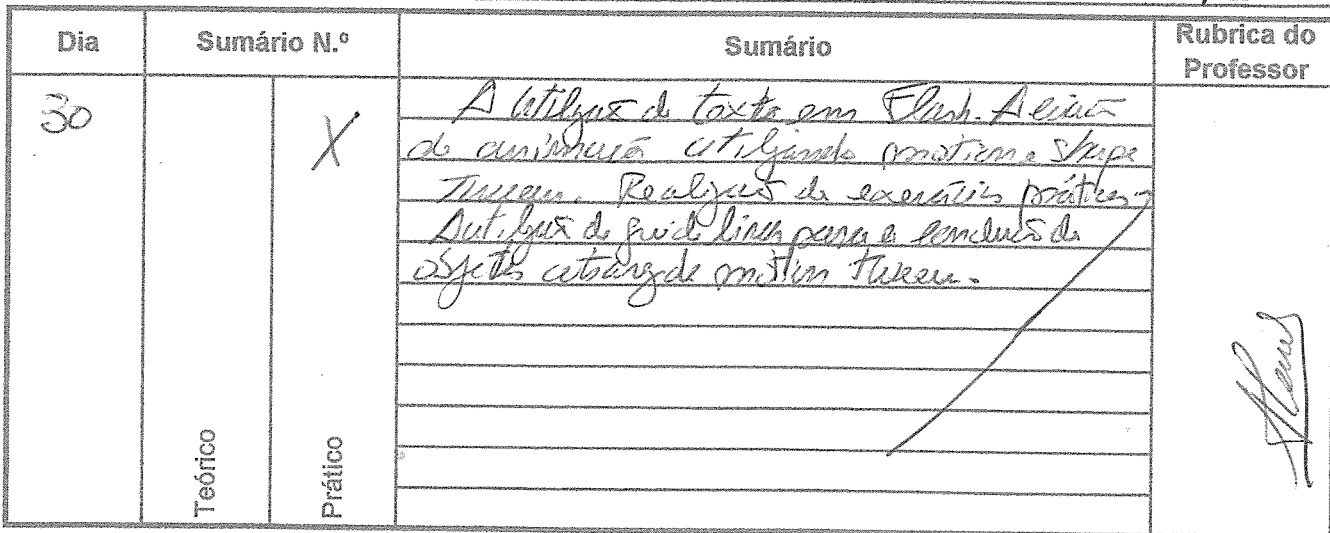 Dia Sumário N.º Sumário Rubrica do Professor
30
Teórico
Prático
X
A utilização de texto em Flash. A criação
de animação utilizando motion e shape
Tween. Realização de exercícios práticos.
A utilização de guide lines para a condução de
objetos através de motion tween.